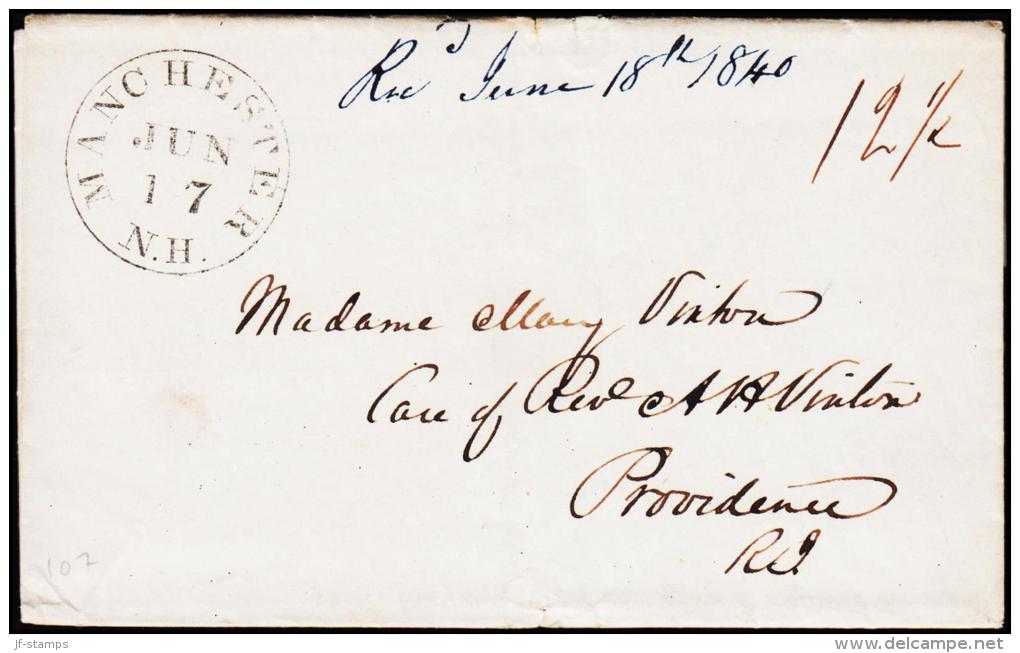 Rec'd June 18th 1840
12 1/2
MANCHESTER
JUN
17
N.H.
Madame Mary Vinton
Care of Revd A H Vinton
Providence
R.I.
107
jf-stamps
www.delcampe.net